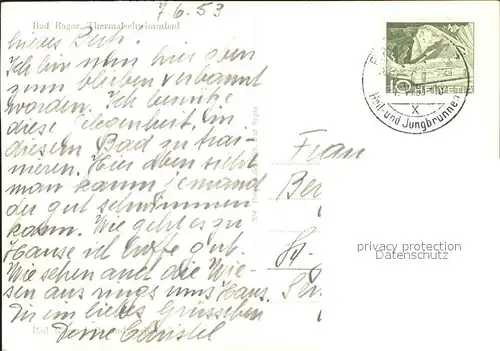 7.6.53
Bad Ragaz, Thermalschwimmbad
liebes
Ich bin nun hier oben
zum bleiben verbannt
worden. Ich benütze
diese Gelegenheit, in
diesem Bad zu trai-
nieren. Hier oben sieht
man kaum jemand
der gut schwimmen
kann. Wie geht es zu
Hause ich hoffe gut.
Wie sehen auch die Wie-
sen aus rings ums Haus.
liebes Grüsschen
Deine
Frau
Ber
St.
10
HELVETIA
Heil- und Jungbrunnen
X
privacy protection
Datenschutz